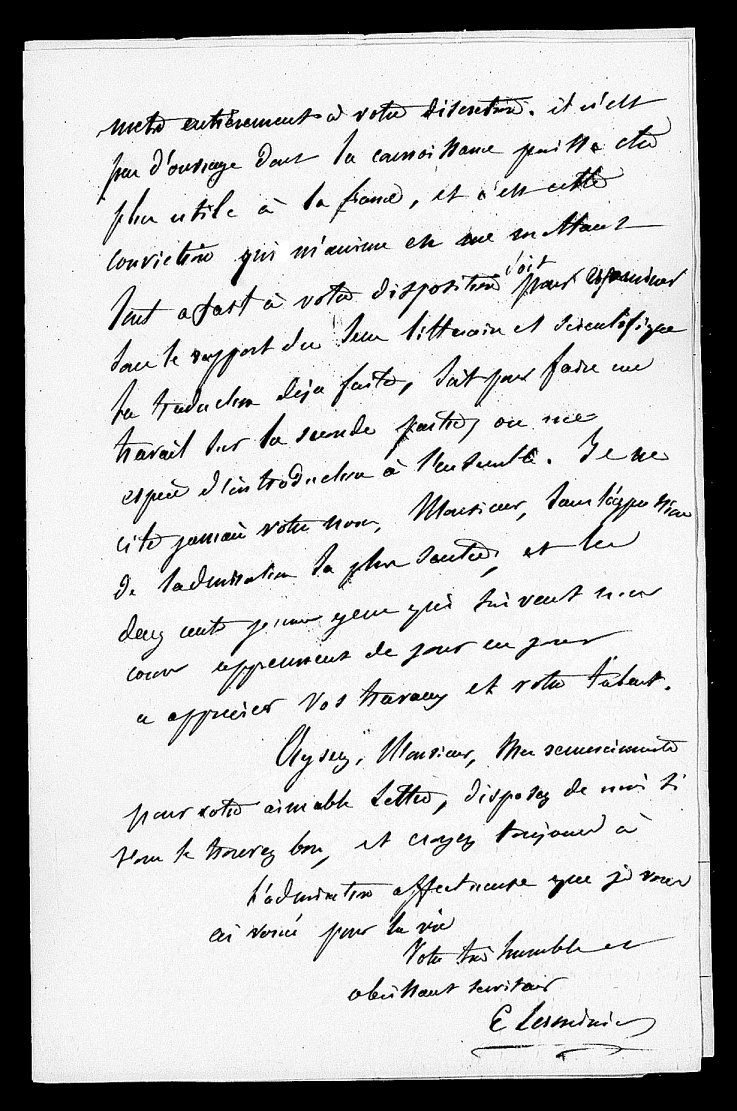 mets entièrement à votre discretion. il n'est
pas d'ouvrage dont la connoissance puisse etre
plus utile à la france, et c'est cette
conviction qui m'anime en me mettant
tout afait à votre disposition soit pour examiner
sous le rapport du sens litteraire et scientifique
la traduction deja faite, soit pour faire un
travail sur la seconde partie, ou une
espèce d'introduction à l'ensemble. Je ne
cite jamais votre nom, Monsieur, sans l'expression
de l'admiration la plus sentie, et les
deux cents jeunes gens qui suivent mon
cours apprennent de jour en jour
a apprécier vos travaux et votre talent.
Agreez, Monsieur, mes remerciments
pour votre aimable Lettre, disposez de moi si
vous le trouvez bon, et croyez toujours à
l'admiration affectueuse que je vous
ai vouée pour la vie
Votre très humble et
obeissant serviteur
E Lerminier